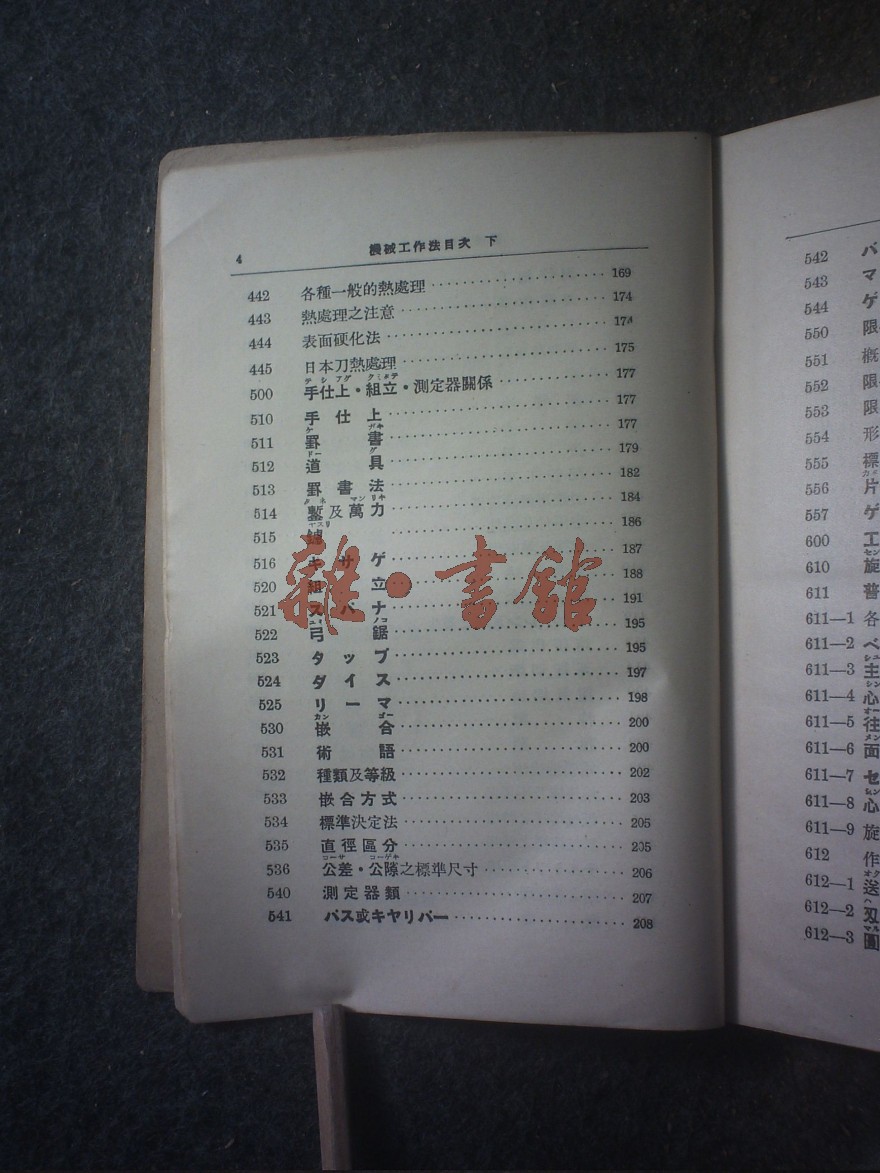 4 機械工作法目次 下
442 各種一般的熱處理 169
443 熱處理之注意 174
444 表面硬化法 174
445 日本刀熱處理 175
テシアゲ クミタテ
500 手仕上・組立・測定器關係 177
510 手仕上 177
ケ ガキ
511 罫書 177
ドー グ
512 道具 179
513 罫書法 182
タネ マンリキ
514 及萬力 184
ヤスリ
515 186
516 キサゲ 187
520 組立 188
521 スパナ 191
ユミ ノコ
522 弓鋸 195
523 タップ 195
524 ダイス 197
525 リーマ 198
カン ゴー
530 嵌合 200
531 術語 200
532 種類及等級 202
533 嵌合方式 203
534 標準決定法 205
535 直徑區分 205
コーサ コーゲキ
536 公差・公隙之標準尺寸 206
540 測定器類 207
541 パス或キヤリパー 208
雜・書館
542 パ
543 マ
544 ゲ
550 限
551 概
552 限
553 限
554 形
555 標
556 片
557 ゲ
600 工
セン
610 旋
611 普
611—1 各
611—2 ベ
シユ
611—3 主
シン
611—4 心
オー
611—5 往
メン
611—6 面
611—7 セ
611—8 心
611—9 旋
612 作
オク
612—1 送
ハ
612—2 刄
マル
612—3 圓